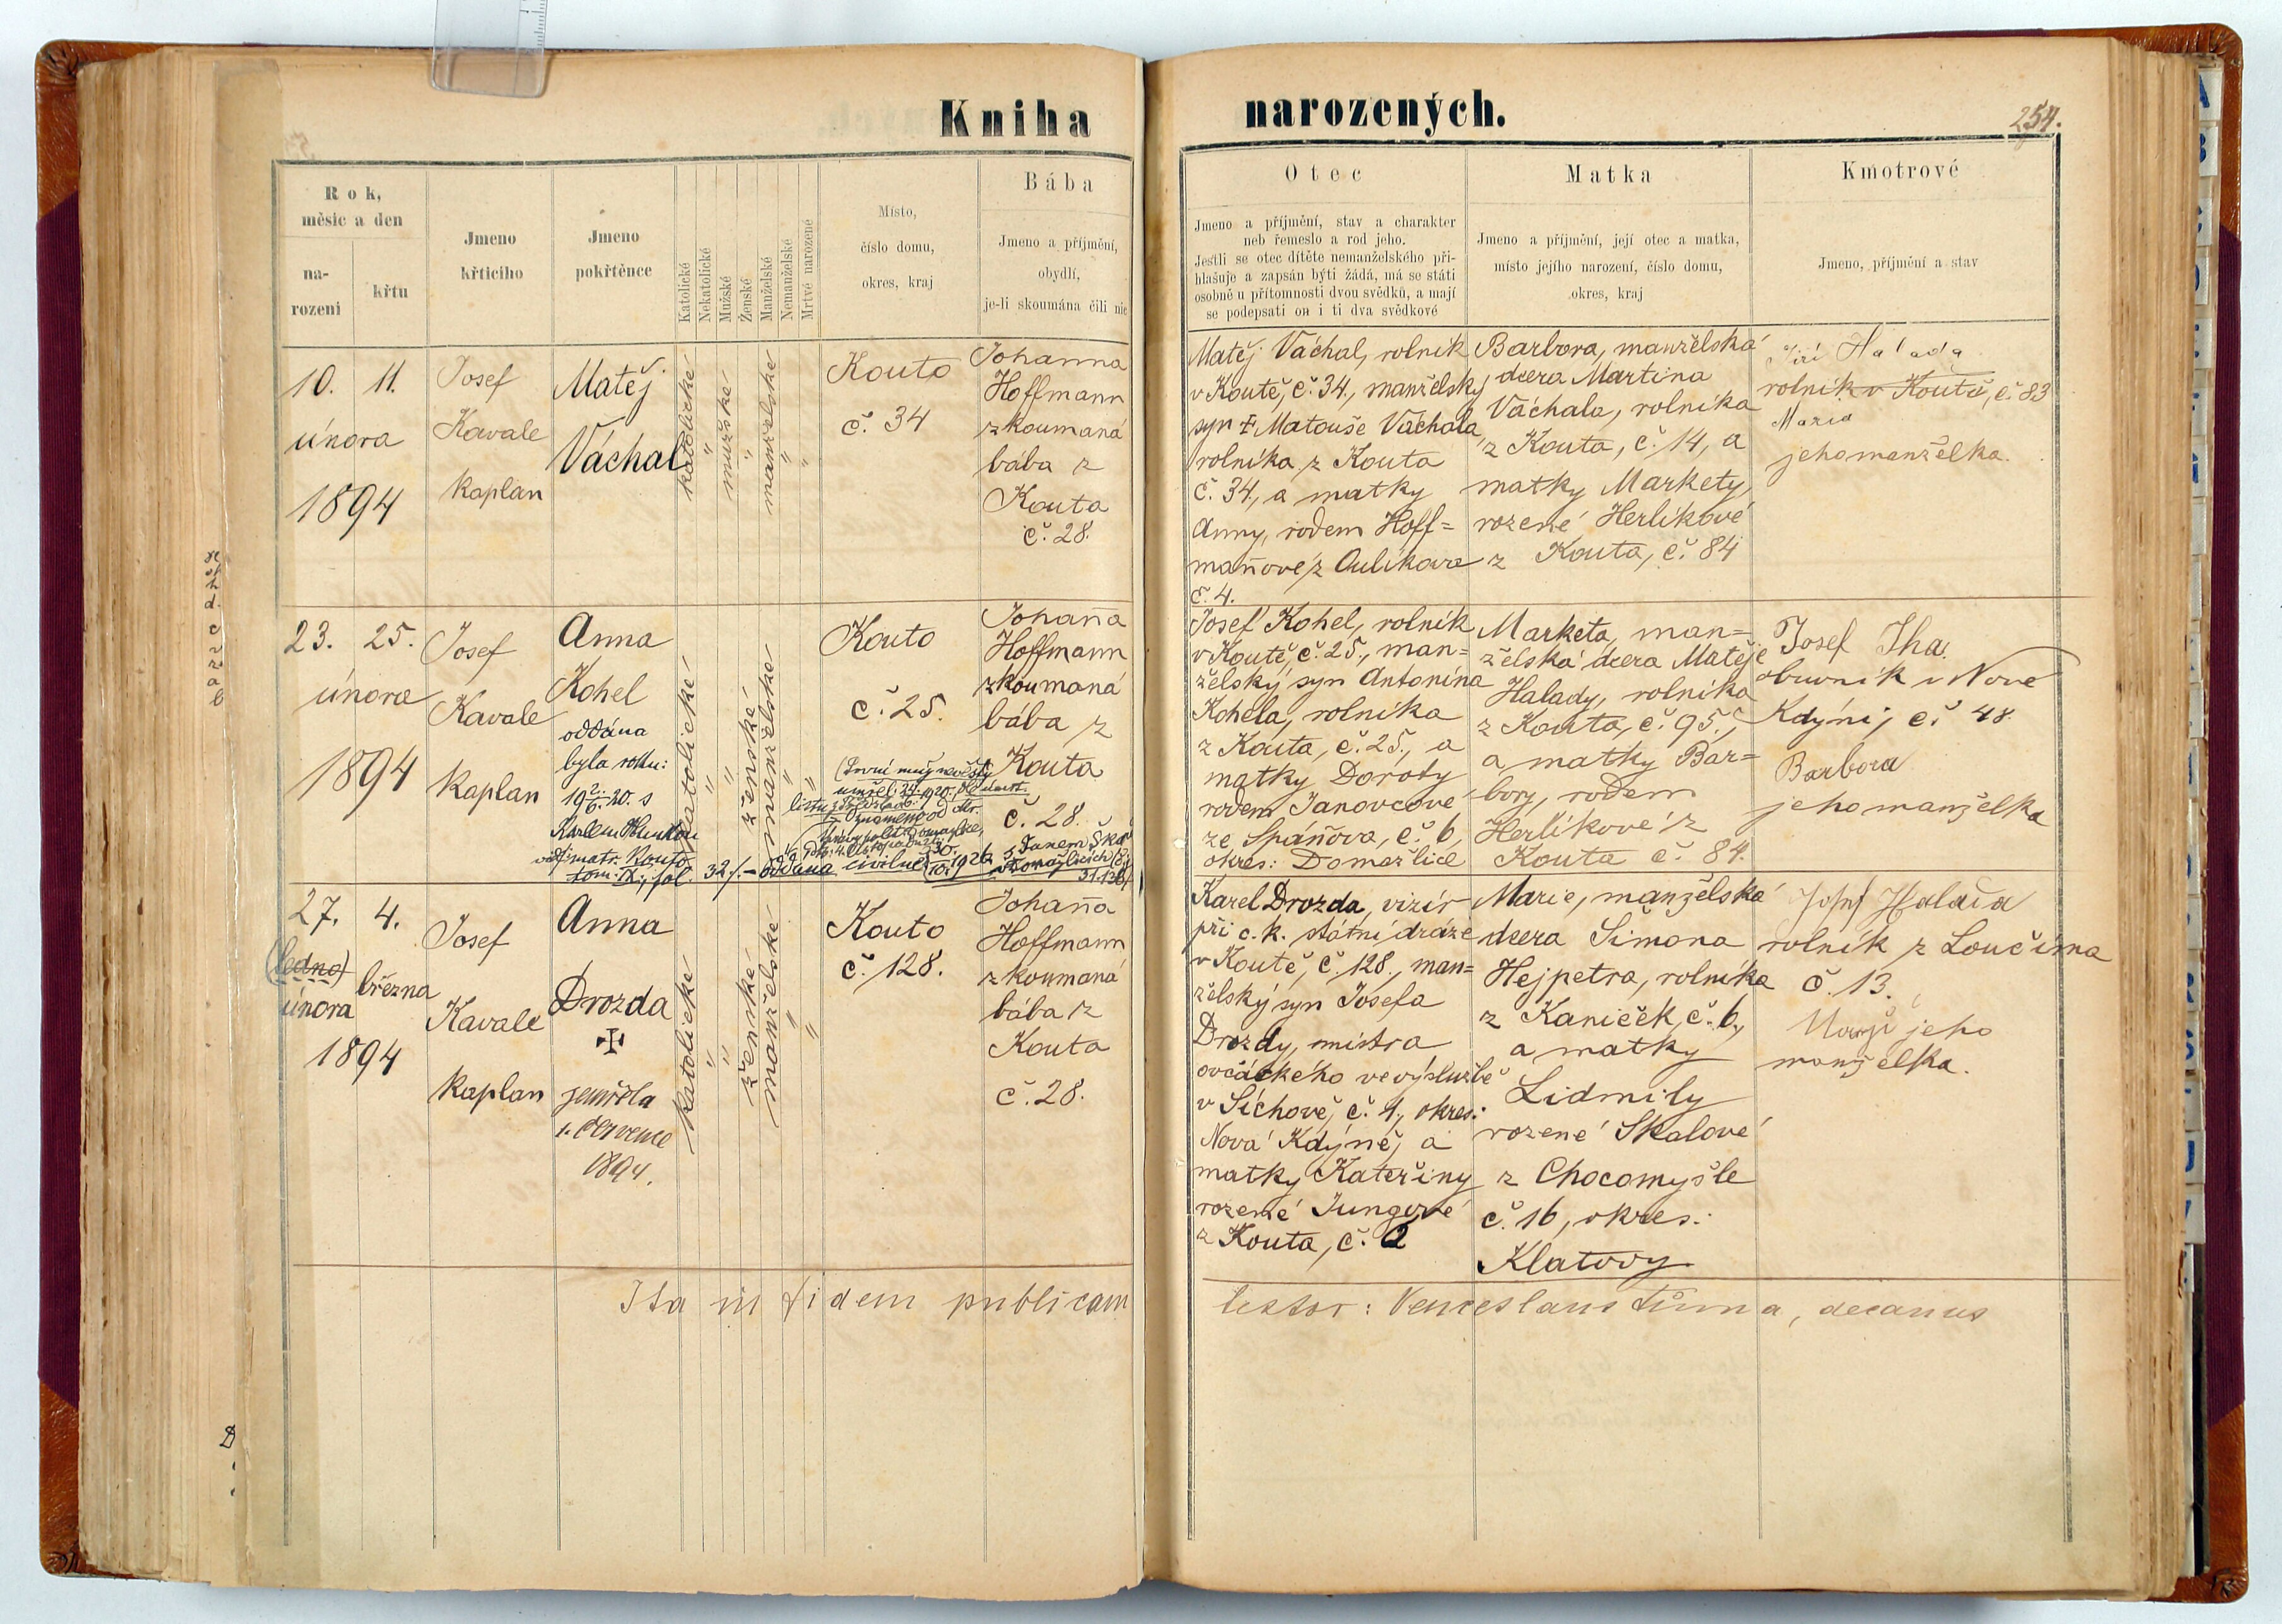 Kniha narozených.
254.
Rok,
měsíc a den
na-
rození
křtu
Jmeno
křticího
Jmeno
pokřtěnce
Katolické
Nekatolické
Mužské
Ženské
Manželské
Nemanželské
Mrtvě narozené
Místo,
číslo domu,
okres, kraj
Bába
Jmeno a příjmění,
obydlí,
je-li skoumána čili nic
Otec
Jmeno a příjmění, stav a charakter
neb řemeslo a rod jeho.
Jestli se otec dítěte nemanželského při-
hlašuje a zapsán býti žádá, má se státi
osobně u přítomnosti dvou svědků, a mají
se podepsati on i ti dva svědkové
Matka
Jmeno a příjmění, její otec a matka,
místo jejího narození, číslo domu,
okres, kraj
Kmotrové
Jmeno, příjmění a stav
10. 11.
února
1894
Josef
Kavale
kaplan
Matěj
Váchal
katolické
"
mužské
"
manželské
"
"
Kouto
č. 34
Johanna
Hoffmann
zkoumaná
bába z
Kouta
č. 28.
Matěj Váchal, rolník
v Koutě, č. 34., manželský
syn † Matouše Váchala,
rolníka z Kouta
č. 34., a matky
Anny, rodem Hoff=
man̄ové z Oulíkova
č. 4.
Barbora, manželská
dcera Martina
Váchala, rolníka
z Kouta, č. 14, a
matky Markety,
rozené Herlíkové
z Kouta, č. 84
Jiří Halada
rolník v Koutě, č. 83
Maria
jeho manželka.
23. 25.
února
1894
Josef
Kavale
kaplan
Anna
Kohel
oddána
byla roku:
19 2./6. 20. s
Karlem
vid: matr. Kouto
tom: IX., fol. 32./.– oddána civilně 30./10. 1926 s Janem
v Domažlicích
katolické
"
"
ženské
manželské
"
"
Kouto
č. 25.
Johan̄a
Hoffmann
zkoumaná
bába z
Kouta
č. 28.
Josef Kohel, rolník
v Koutě, č. 25., man=
želský syn Antonína
Kohela, rolníka
z Kouta, č. 25., a
matky Doroty
rodem Janovcové
ze Spáňova, č. 6,
okres: Domažlice
Marketa, man=
želská dcera Matěje
Halady, rolníka
z Kouta, č. 95.,
a matky Bar=
bory, rodem
Herlíkové z
Kouta č. 84.
Josef Iha
obuvník v Nové
Kdýni, č. 48.
Barbora
jeho manželka
27. 4.
(ledna)
února
března
1894
Josef
Kavale
kaplan
Anna
Drozda
✠
zemřela
1. července
1894.
katolické
"
"
ženské
manželské
"
"
Kouto
č. 128.
Johan̄a
Hoffmann
zkoumaná
bába z
Kouta
č. 28.
Karel Drozda, vizír
při c. k. státní dráze
v Koutě, č. 128., man=
želský syn Josefa
Drozdy, mistra
ovčáckého ve výslužbě
v Síchově, č. 1., okres:
Nová Kdýně, a
matky Kateřiny
rozené Jungové
z Kouta, č. 2
Marie, manželská
dcera Šimona
Hejpetra, rolníka
z Kaniček, č. 6.,
a matky
Lidmily
rozené Skalové
z Chocomyšle
č. 16, okres:
Klatovy
Josef Halada
rolník z Loučima
č. 13.
jeho
manželka.
Ita in fidem publicam
testor: Venceslaus Tůma, decanus